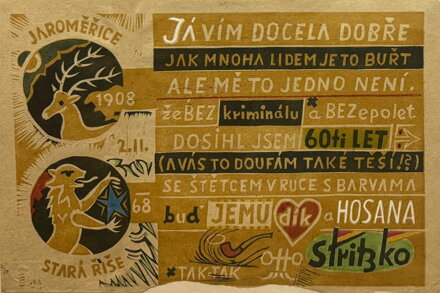 JAROMĚŘICE
1908
2.11.
68
STARÁ ŘÍŠE
JÁ VÍM DOCELA DOBŘE
JAK MNOHA LIDEM JE TO BUŘT
ALE MĚ TO JEDNO NENÍ,
že BEZ kriminálu a BEZ epolet
DOSÍHL JSEM 60ti LET
(A VÁS TO DOUFÁM TAKÉ TĚŠÍ!?)
SE ŠTĚTCEM V RUCE S BARVAMA
buď JEMU dík a HOSANA
TAK-TAK
Otto
Stritzko